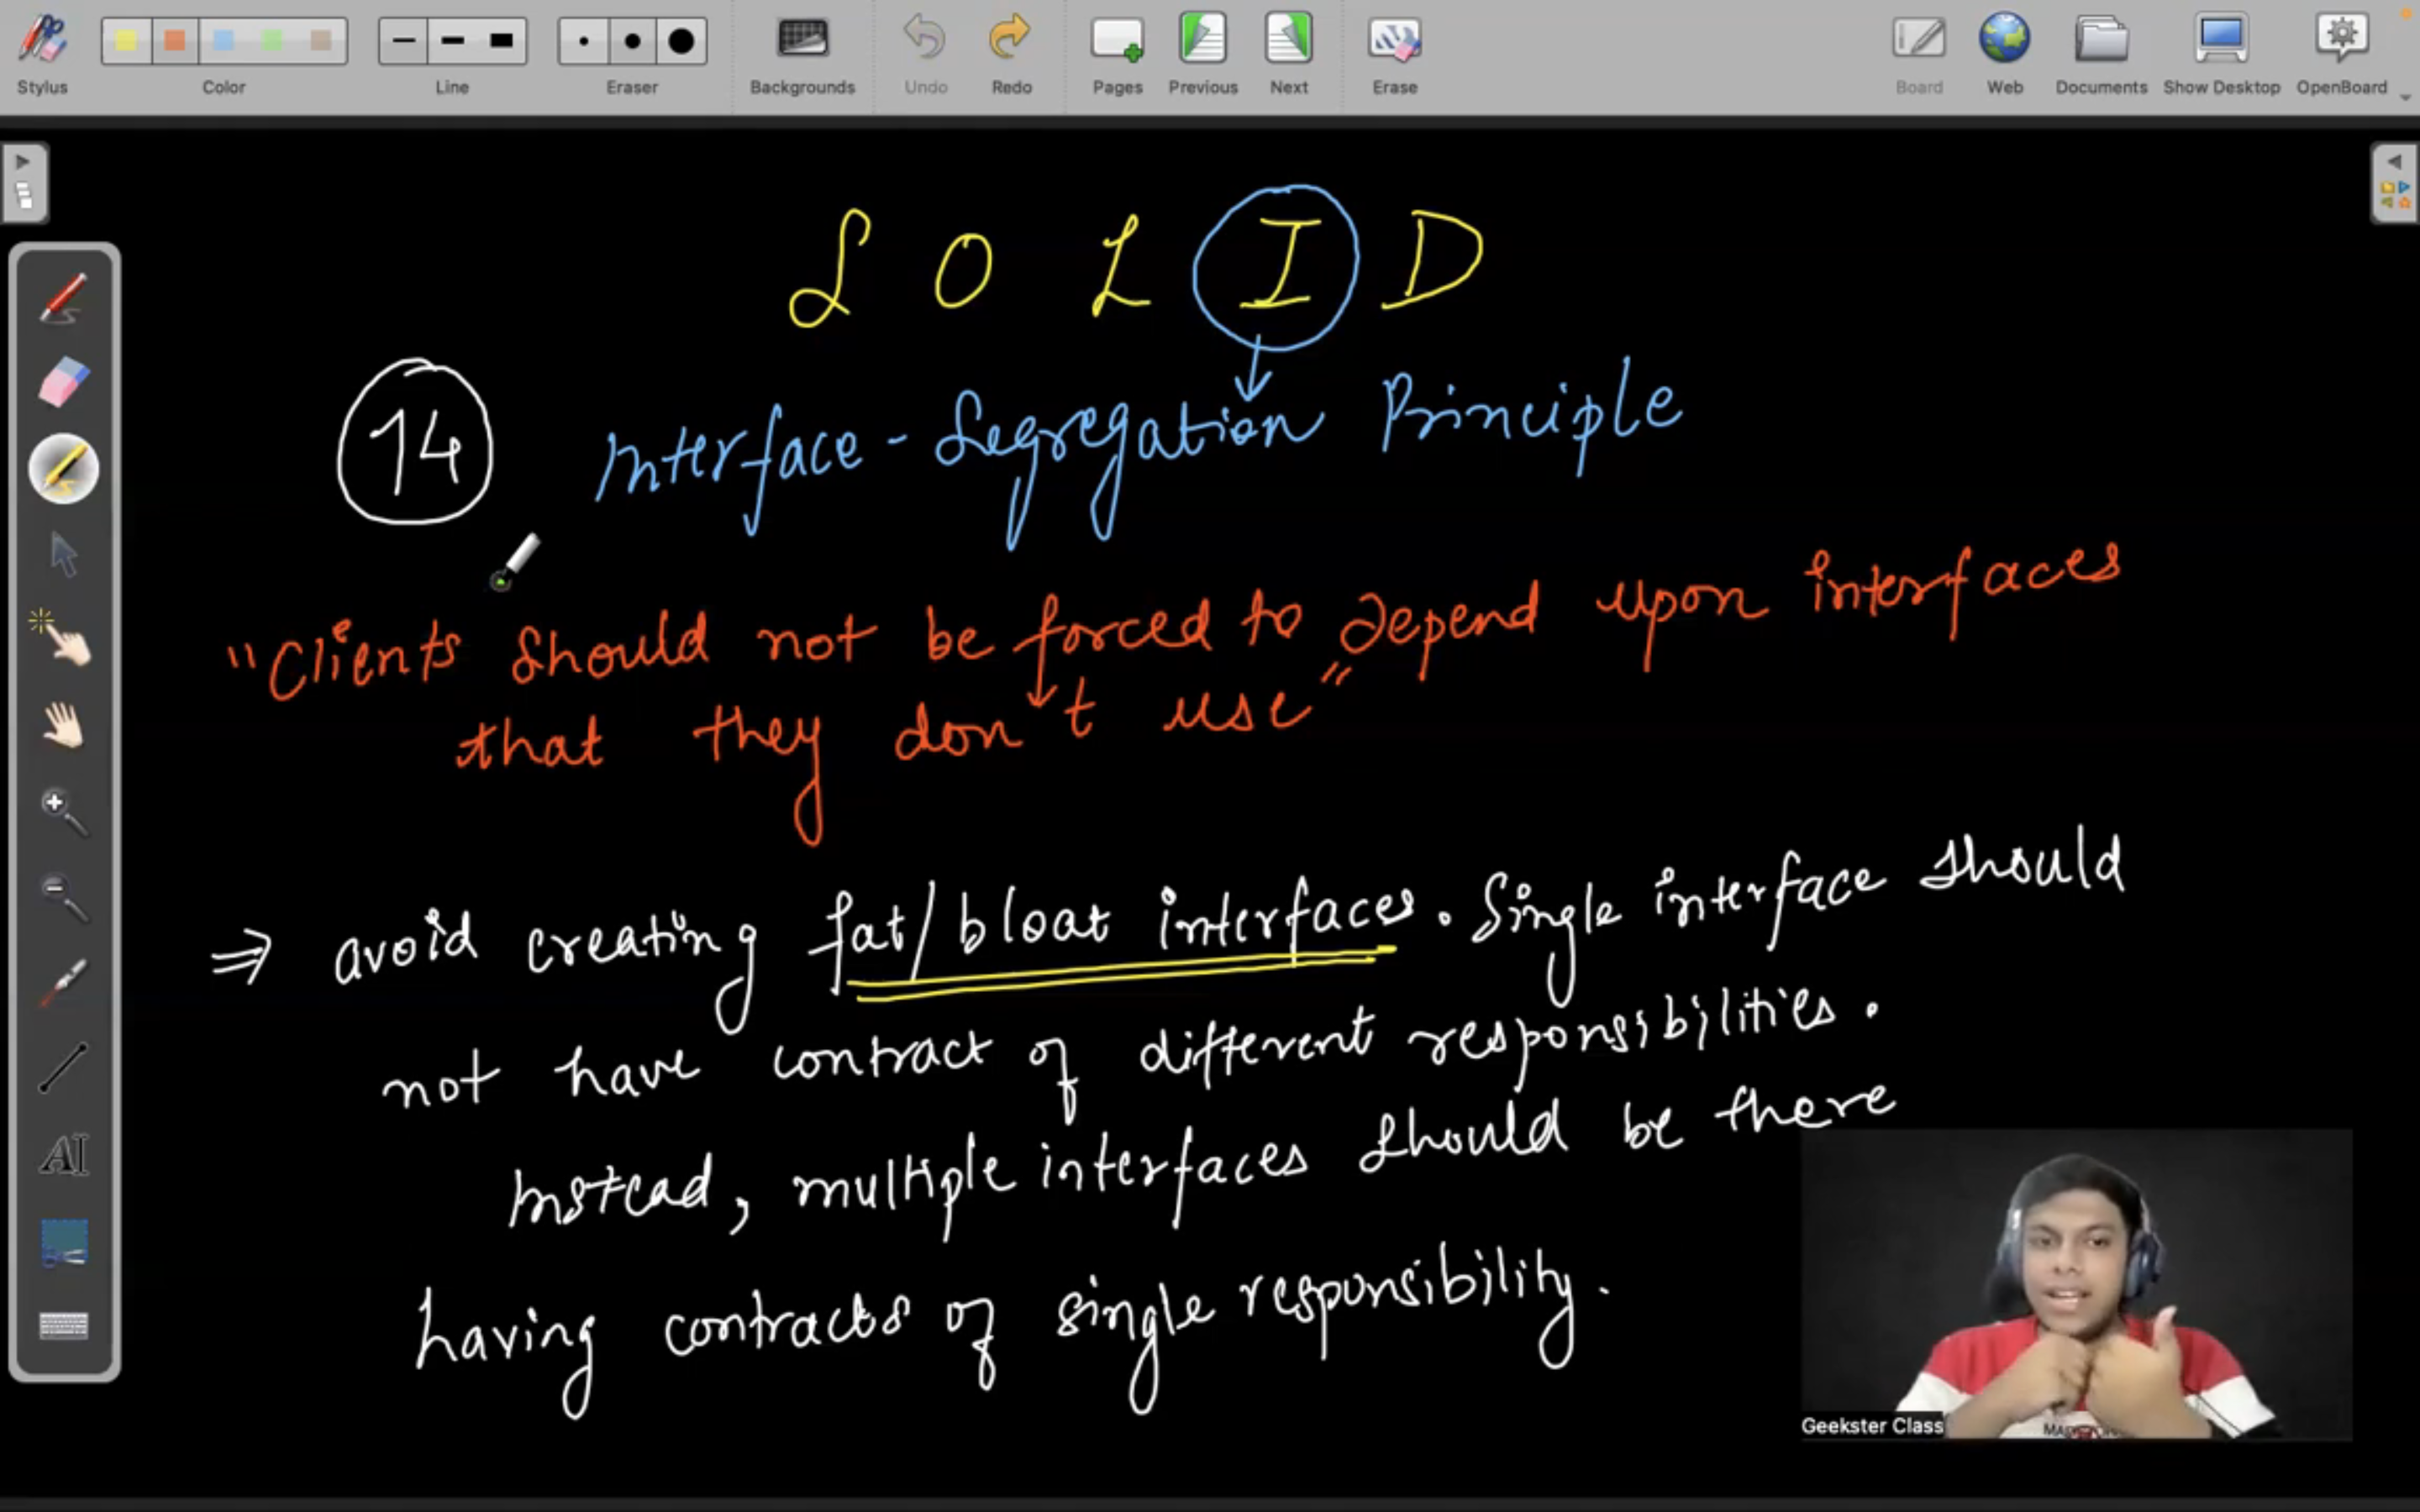 Stylus Color Line Eraser Backgrounds Undo Redo Pages Previous Next Erase Board Web Documents Show Desktop OpenBoard
S O L I D
14 Interface - Segregation Principle
"Clients should not be forced to depend upon interfaces
that they don't use"
⇒ avoid creating fat/bloat interfaces. Single interface should
not have contract of different responsibilities.
Instead, multiple interfaces should be there
having contracts of single responsibility.
AI
Geekster Class